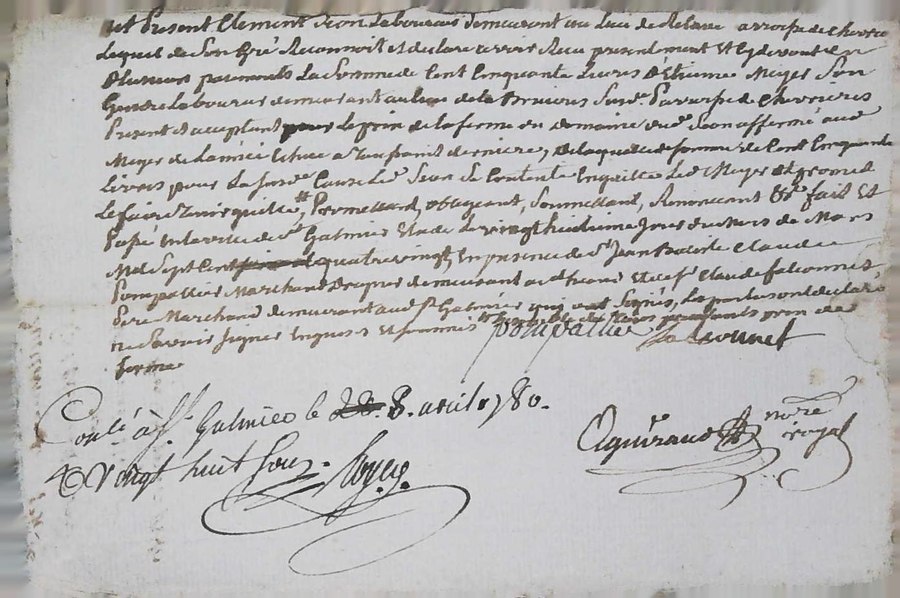 est Present Clement Jean Laboureur demeurant au Lieu de Relave parroisse de Chevrie
Lequel de Son Gré Reconnoit et declare avoir Recu presentement et Cydevant en
Plusieurs paiements La Somme de Cent Cinquante Livres d'Etienne Meyer Son
Grangé Laboureur demeurant au lieu de la Bruiere Susd. Parroisse de Chevrieres
Present et acceptant pour Le prix de la ferme du Domaine dud. Jean affermé aud
Meyer de Lannée Echue a la Toussaint derniere, De laquelle Somme de Cent Cinquante
Livres pour La Susd. Cause Led. Jean Se Contente En quitte Led. Meyer et promet
Le faire Tenir quitte, Promettant, obligeant, Soumettant, Renoncant &c. fait Et
Passé En La ville de St Galmier Etude Le vingt huitieme Jour du Mois de Mars
Mil Sept Cent quatre vingt, En presence de Sr Jean Claude
Pompallier Marchand Drapier demeurant aud. et de Sr Claude falconnet
Pere Marchand demeurant aud. St Galmier qui ont Signés, Les parties ont declaré
ne Savoir Signer Enquis Et Sommés prix de
ferme
Pompallier falconnet
Conté à St Galmier le 8. avril 1780.
R Vingt huit Sous.
nore
royal